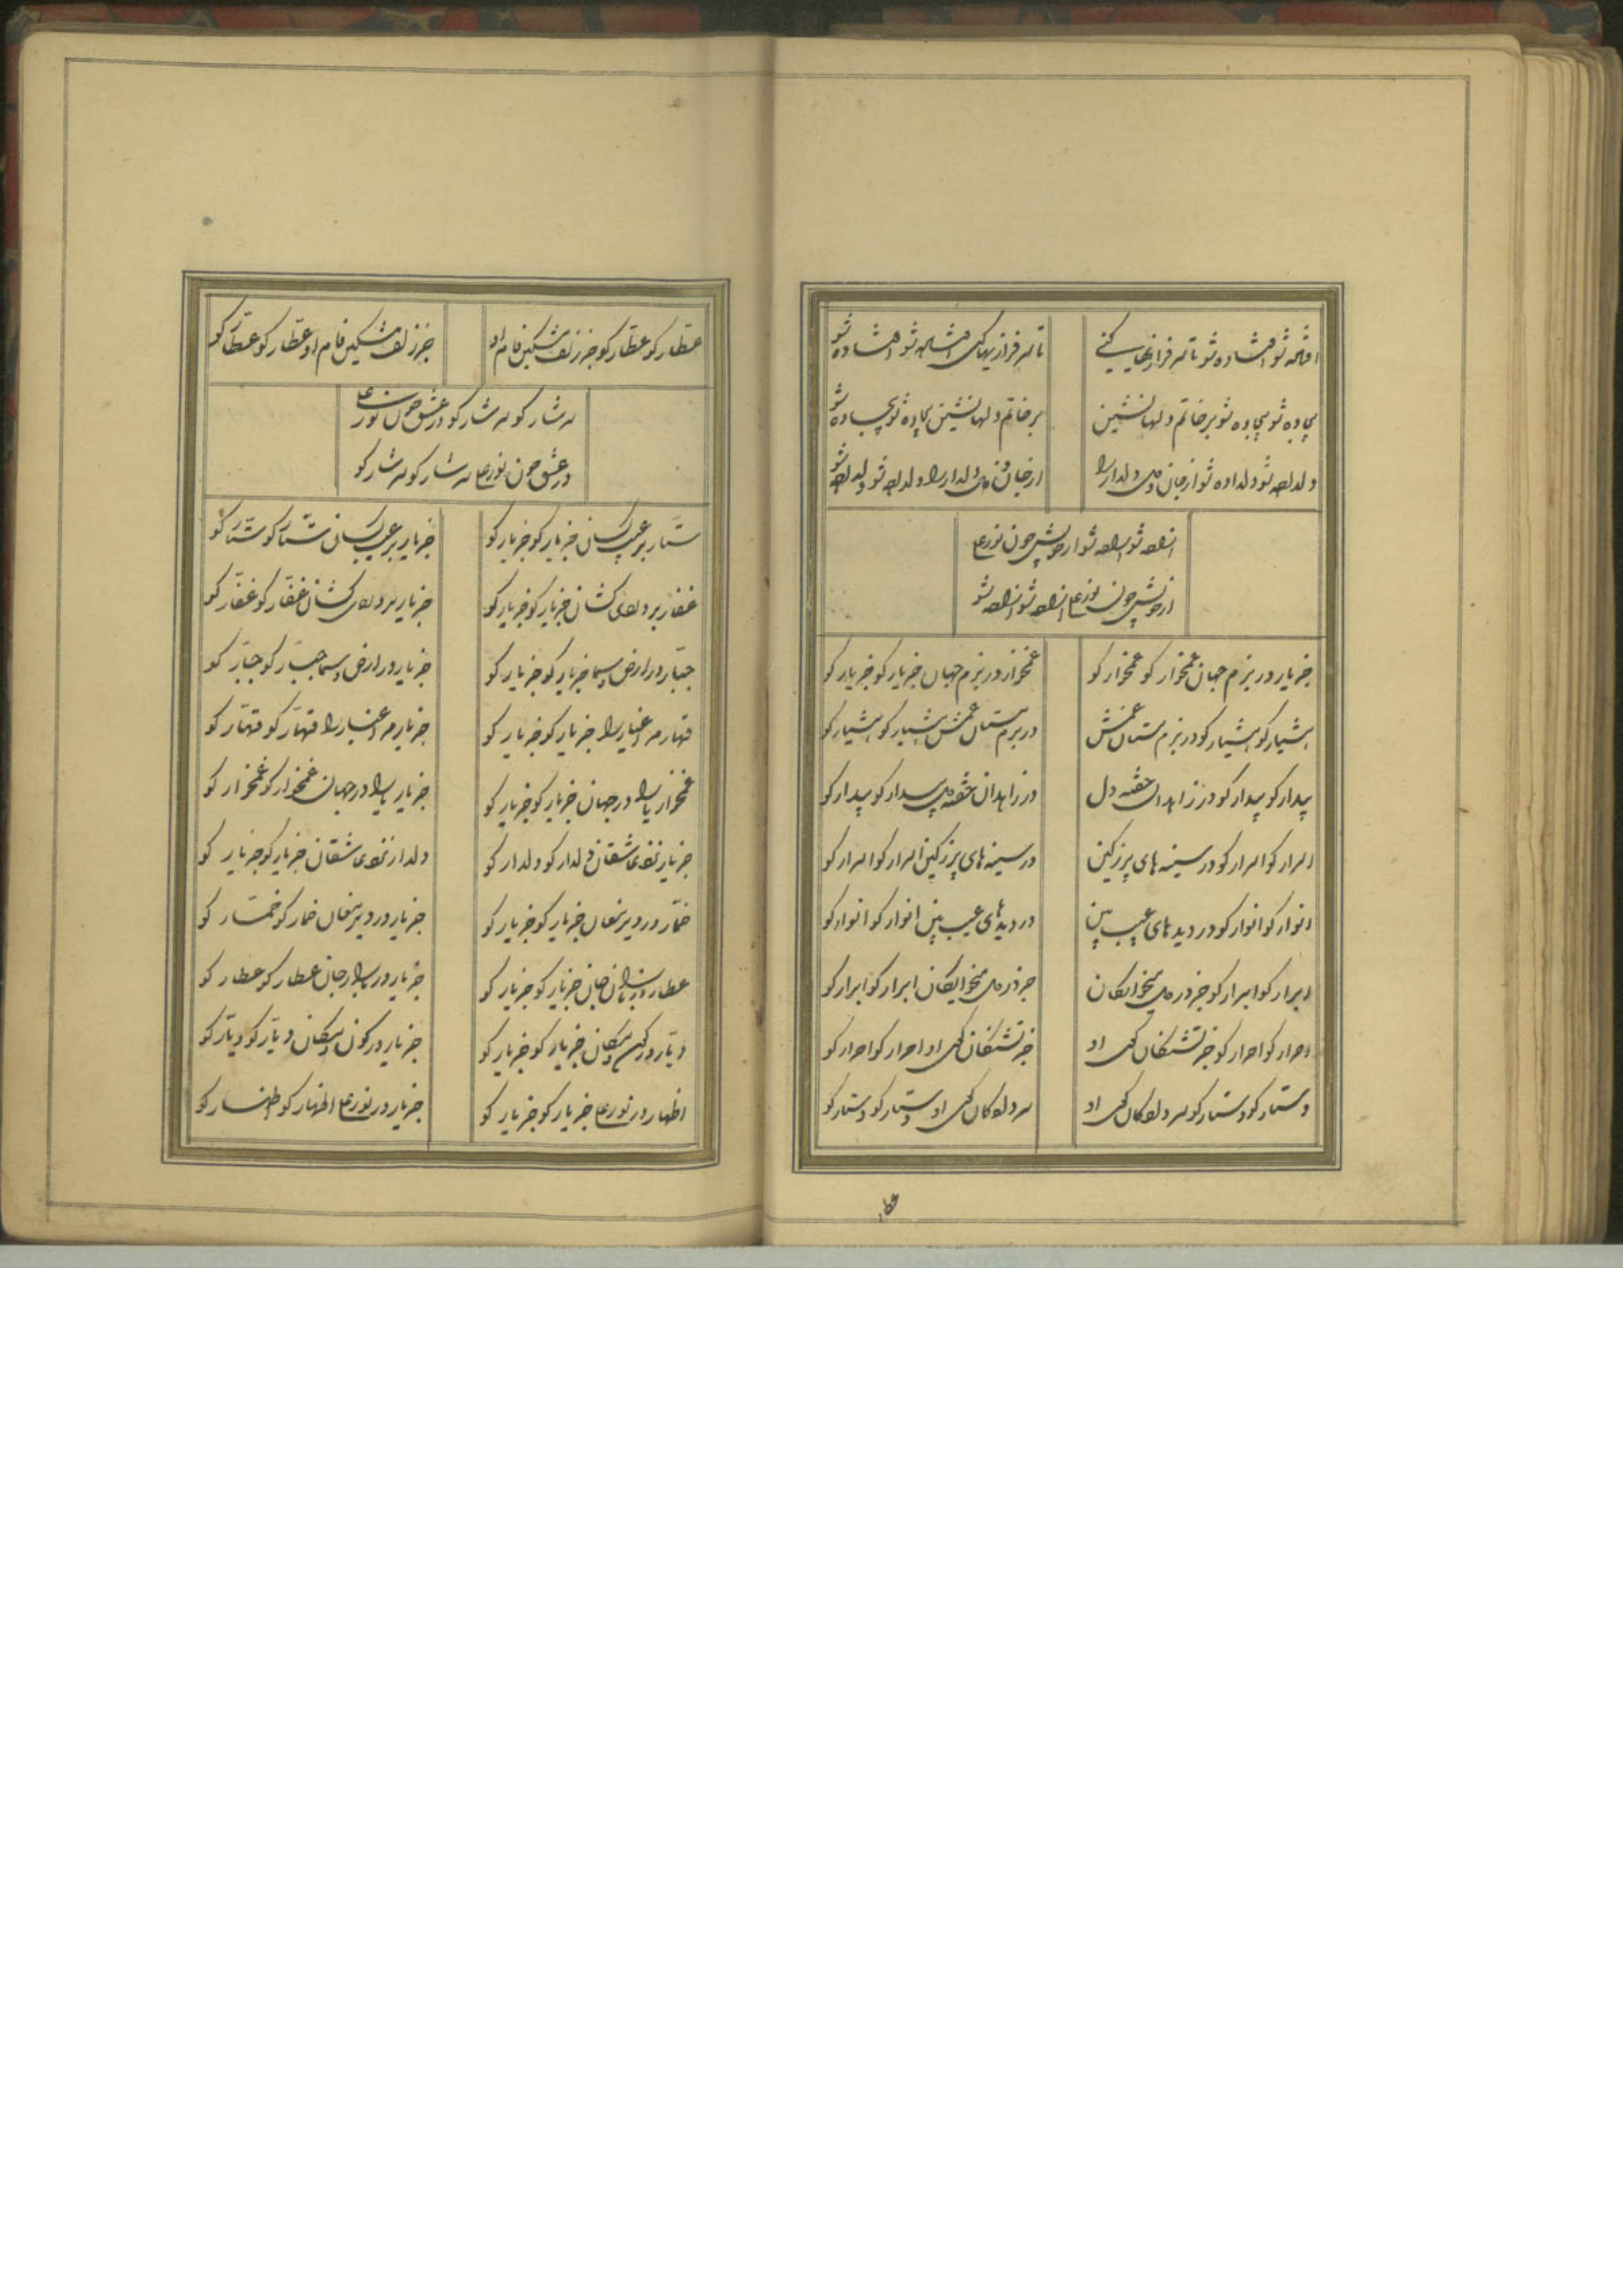 افتاده شو افتاده شو تا سرفرازیها کنی
تا سرفرازیها کنی افتاده شو افتاده شو
بیجاده شو بیجاده شو بر خاتم دلها نشین
بر خاتم دلها نشین بیجاده شو بیجاده شو
دلداده شو دلداده شو از جان و دل دلدار را
از جان و دل دلدار را دلداده شو دلداده شو
آزاده شو آزاده شو از خویش چون نورعلی
از خویش چون نورعلی آزاده شو آزاده شو
جز یار در بزم جهان غمخوار کو غمخوار کو
غمخوار در بزم جهان جز یار کو جز یار کو
هشیار کو هشیار کو در بزم مستان غمش
در بزم مستان غمش هشیار کو هشیار کو
بیدار کو بیدار کو در زاهدان خفته دل
در زاهدان خفته دل بیدار کو بیدار کو
اسرار کو اسرار کو در سینه های پر ز کین
در سینه های پر ز کین اسرار کو اسرار کو
انوار کو انوار کو در دیدهای عیب بین
در دیدهای عیب بین انوار کو انوار کو
ابرار کو ابرار کو جز در
جز در ابرار کو ابرار کو
احرار کو احرار کو جز تشنگان لعل او
جز تشنگان لعل او احرار کو احرار کو
دستار کو دستار کو
او دستار کو دستار کو
عطار کو عطار کو جز زلف مشکین فام او
جز زلف مشکین فام او عطار کو عطار کو
سرشار کو سرشار کو در عشق چون نورعلی
در عشق چون نورعلی سرشار کو سرشار کو
ستار بر عیب کسان جز یار کو جز یار کو
جز یار بر عیب کسان ستار کو ستار کو
غفار بر دردی کشان جز یار کو جز یار کو
جز یار بر دردی کشان غفار کو غفار کو
جبار در ارض و سما جز یار کو جز یار کو
جز یار در ارض و سما جبار کو جبار کو
قهار مر اغیار را جز یار کو جز یار کو
جز یار مر اغیار را قهار کو قهار کو
غمخوار یاران در جهان جز یار کو جز یار کو
جز یار یاران در جهان غمخوار کو غمخوار کو
جز یار نزد عاشقان دلدار کو دلدار کو
دلدار نزد عاشقان جز یار کو جز یار کو
خمار در دیر مغان جز یار کو جز یار کو
جز یار در دیر مغان خمار کو خمار کو
عطار در بازار جان جز یار کو جز یار کو
جز یار در بازار جان عطار کو عطار کو
دیار در کون و مکان جز یار کو جز یار کو
جز یار در کون و مکان دیار کو دیار کو
اظهار در نورعلی جز یار کو جز یار کو
جز یار در نورعلی اظهار کو اظهار کو